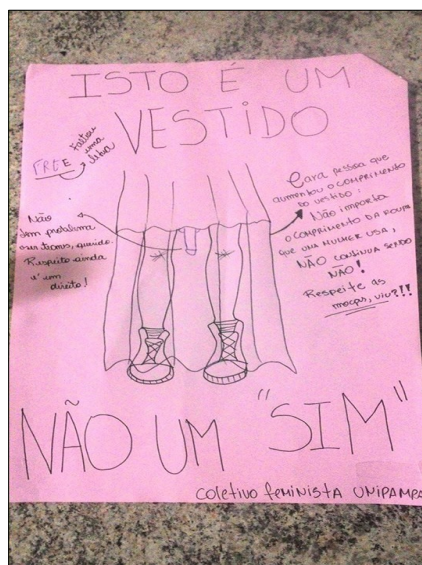 ISTO É UM
VESTIDO
FREE
Faltou
uma
letra
Não
tem problema
sermos, querido.
Respeito ainda
é um
direito!
Cara pessoa que
aumentou o comprimento
do vestido:
Não importa
o comprimento da roupa
que uma mulher usa,
NÃO continua sendo
NÃO!
Respeite as
moças, viu?!!
NÃO UM "SIM"
coletivo feminista UNIPAMPA